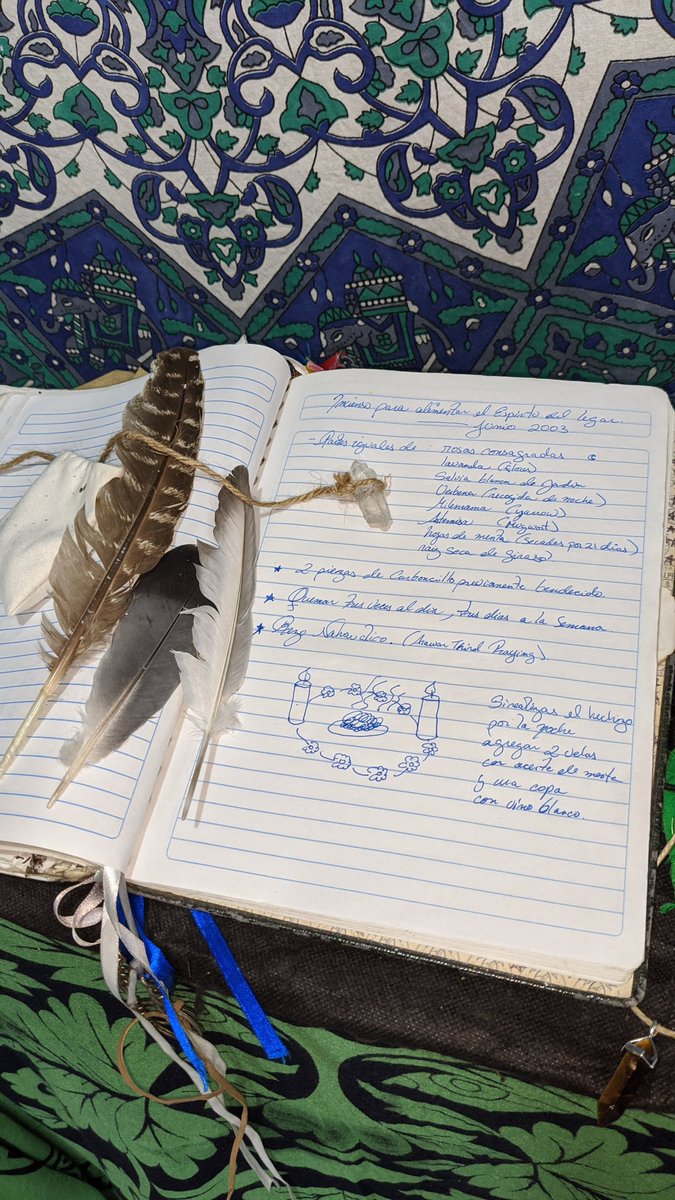 Incienso para alimentar el Espíritu del lugar.
- Junio 2003
- Partes iguales de rosas consagradas
lavanda (flores)
Salvia blanca de Jardín
Verbena (recogida de noche)
Milenrama (Yarrow)
Artemisa (Mugwort)
hojas de menta (secadas por 21 días)
raíz seca de Girasol
★ 2 piezas de Carboncillo previamente bendecido.
★ Quemar tres veces al día, tres días a la semana
★ Rezo (Third Praying).
Si realizas el hechizo
por la noche
agregar 2 velas
con aceite de
y una copa
con vino blanco.